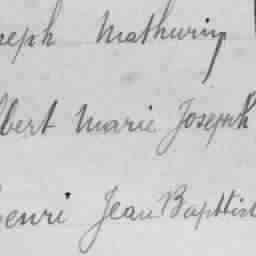 seph Mathurin
lbert Marie Joseph
enri Jean Baptist